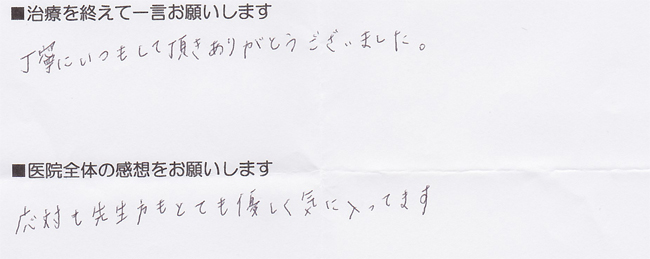 ■治療を終えて一言お願いします
丁寧にいつもして頂きありがとうございました。
■医院全体の感想をお願いします
応対も先生方もとても優しく気に入ってます